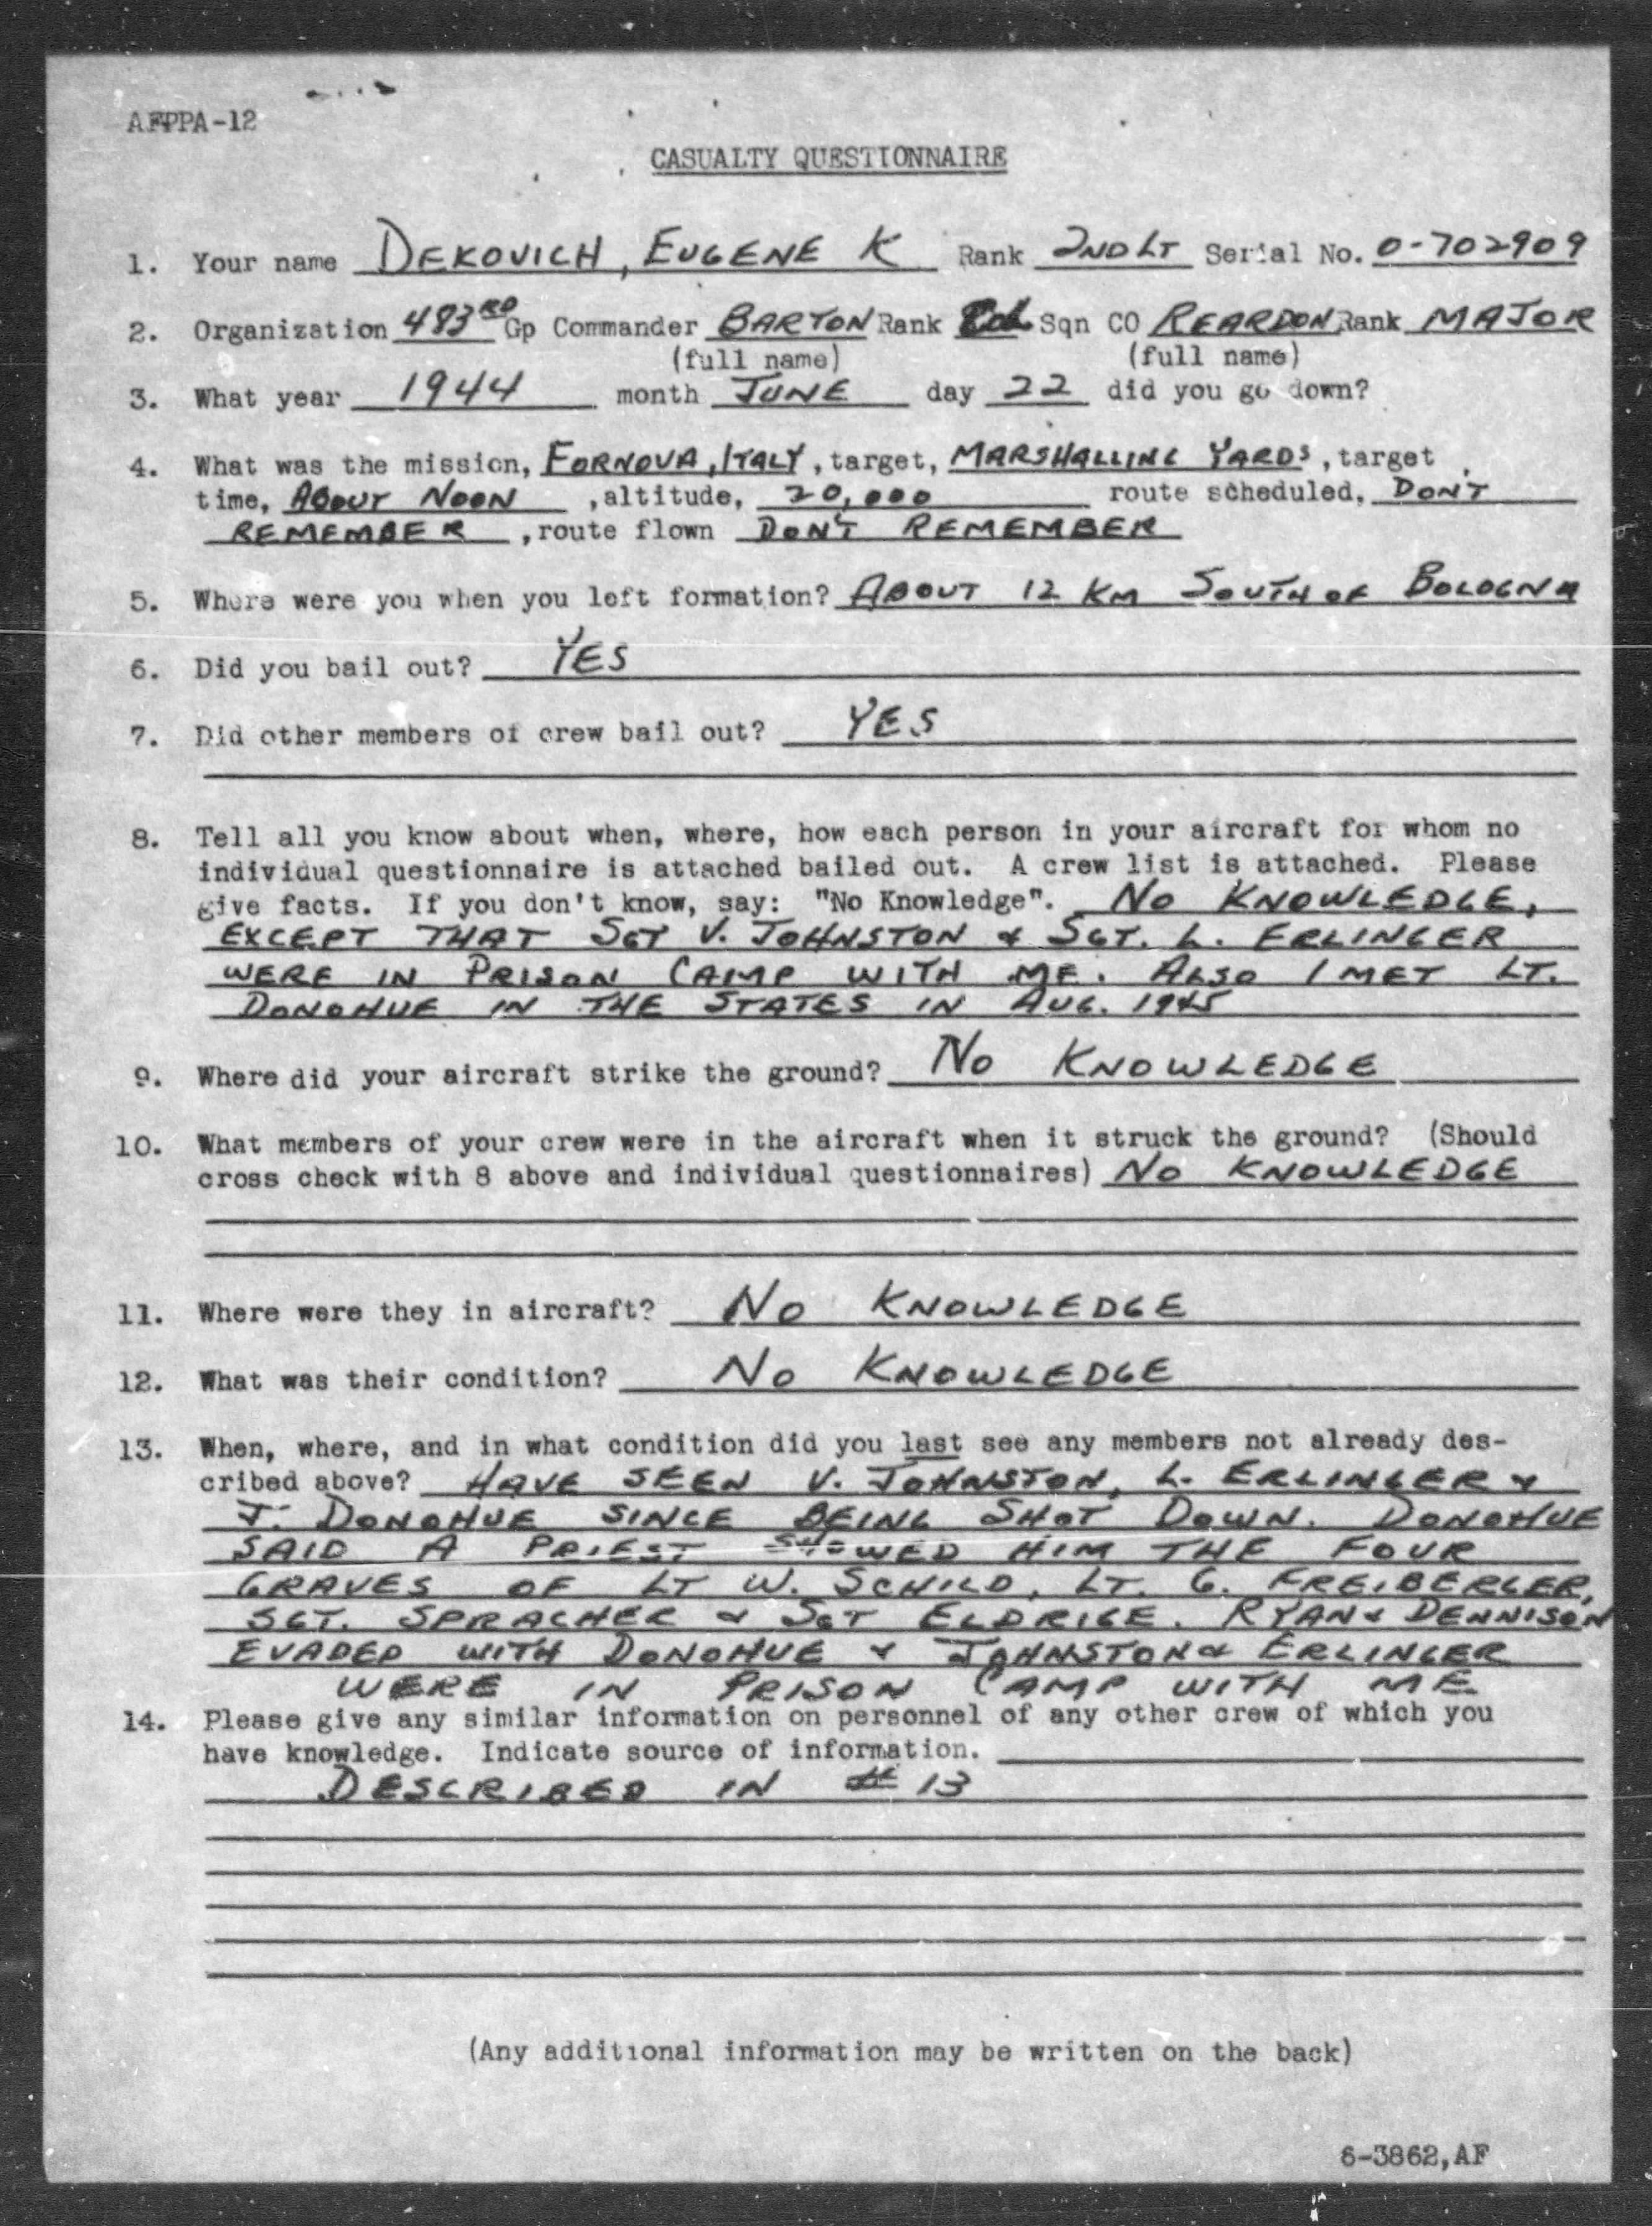 AFPPA-12
CASUALTY QUESTIONNAIRE
1. Your name DEKOVICH, EUGENE K Rank 2ND LT Serial No. O-702909
2. Organization 483RD Gp Commander BARTON Rank Col Sqn CO REARDON Rank MAJOR
(full name) (full name)
3. What year 1944 month JUNE day 22 did you go down?
4. What was the mission, FORNOVA, ITALY, target, MARSHALLING YARDS, target
time, ABOUT NOON, altitude, 20,000 route scheduled, DON'T
REMEMBER, route flown DON'T REMEMBER
5. Where were you when you left formation? ABOUT 12 KM SOUTH OF BOLOGNA
6. Did you bail out? YES
7. Did other members of crew bail out? YES
8. Tell all you know about when, where, how each person in your aircraft for whom no
individual questionnaire is attached bailed out. A crew list is attached. Please
give facts. If you don't know, say: "No Knowledge". NO KNOWLEDGE,
EXCEPT THAT SGT V. JOHNSTON & SGT. L. ERLINGER
WERE IN PRISON CAMP WITH ME. ALSO I MET LT.
DONOHUE IN THE STATES IN AUG. 1945
9. Where did your aircraft strike the ground? NO KNOWLEDGE
10. What members of your crew were in the aircraft when it struck the ground? (Should
cross check with 8 above and individual questionnaires) NO KNOWLEDGE
11. Where were they in aircraft? NO KNOWLEDGE
12. What was their condition? NO KNOWLEDGE
13. When, where, and in what condition did you last see any members not already des-
cribed above? HAVE SEEN V. JOHNSTON, L. ERLINGER &
J. DONOHUE SINCE BEING SHOT DOWN. DONOHUE
SAID A PRIEST SHOWED HIM THE FOUR
GRAVES OF LT W. SCHILD, LT. G. FREIBERGER,
SGT. SPRACHER & SGT ELDRIGE. RYAN & DENNISON
EVADED WITH DONOHUE & JOHNSTON & ERLINGER
WERE IN PRISON CAMP WITH ME
14. Please give any similar information on personnel of any other crew of which you
have knowledge. Indicate source of information.
DESCRIBED IN # 13
(Any additional information may be written on the back)
6-3862,AF